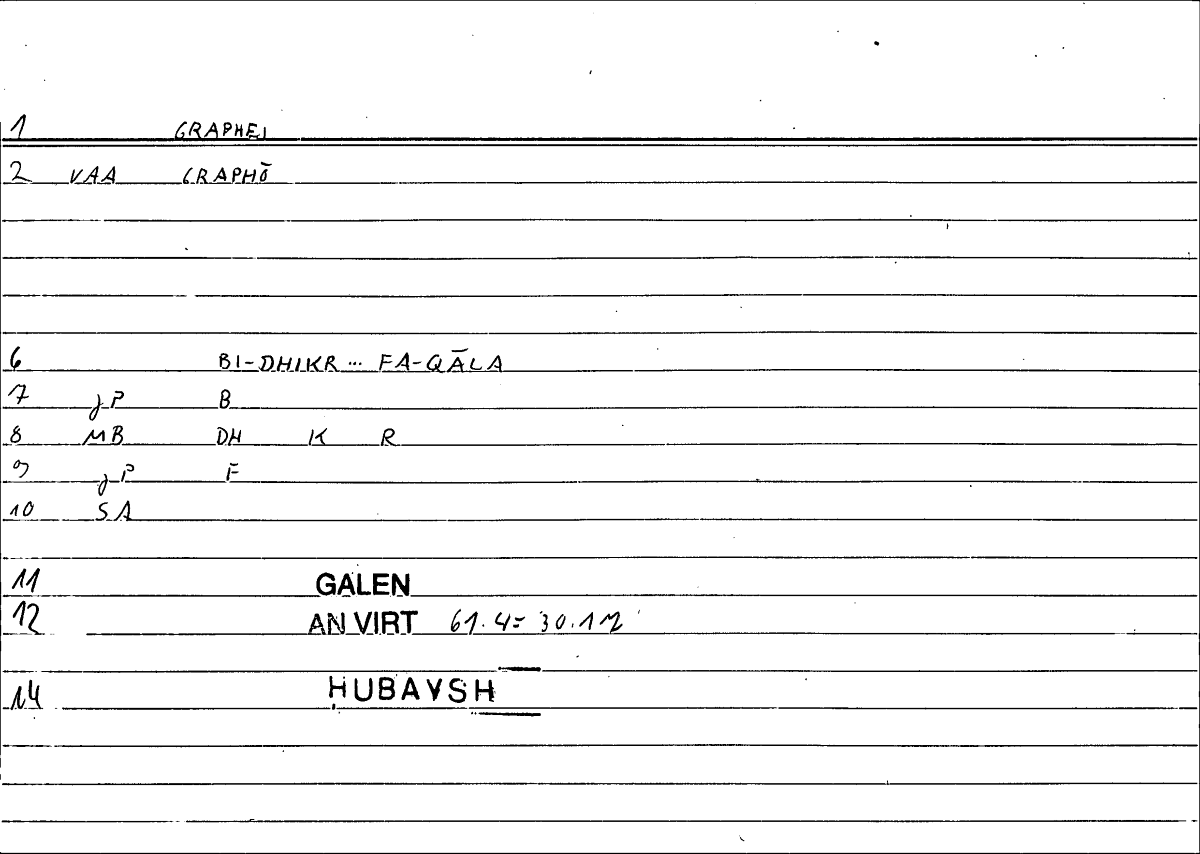 1 GRAPHEI
2 VAA GRAPHŌ
6 BI-DHIKR ... FA-QĀLA
7 JP B
8 MB DH K R
9 JP F
10 SA
11 GALEN
12 AN VIRT 61.4= 30.12
14 ḤUBAYSH